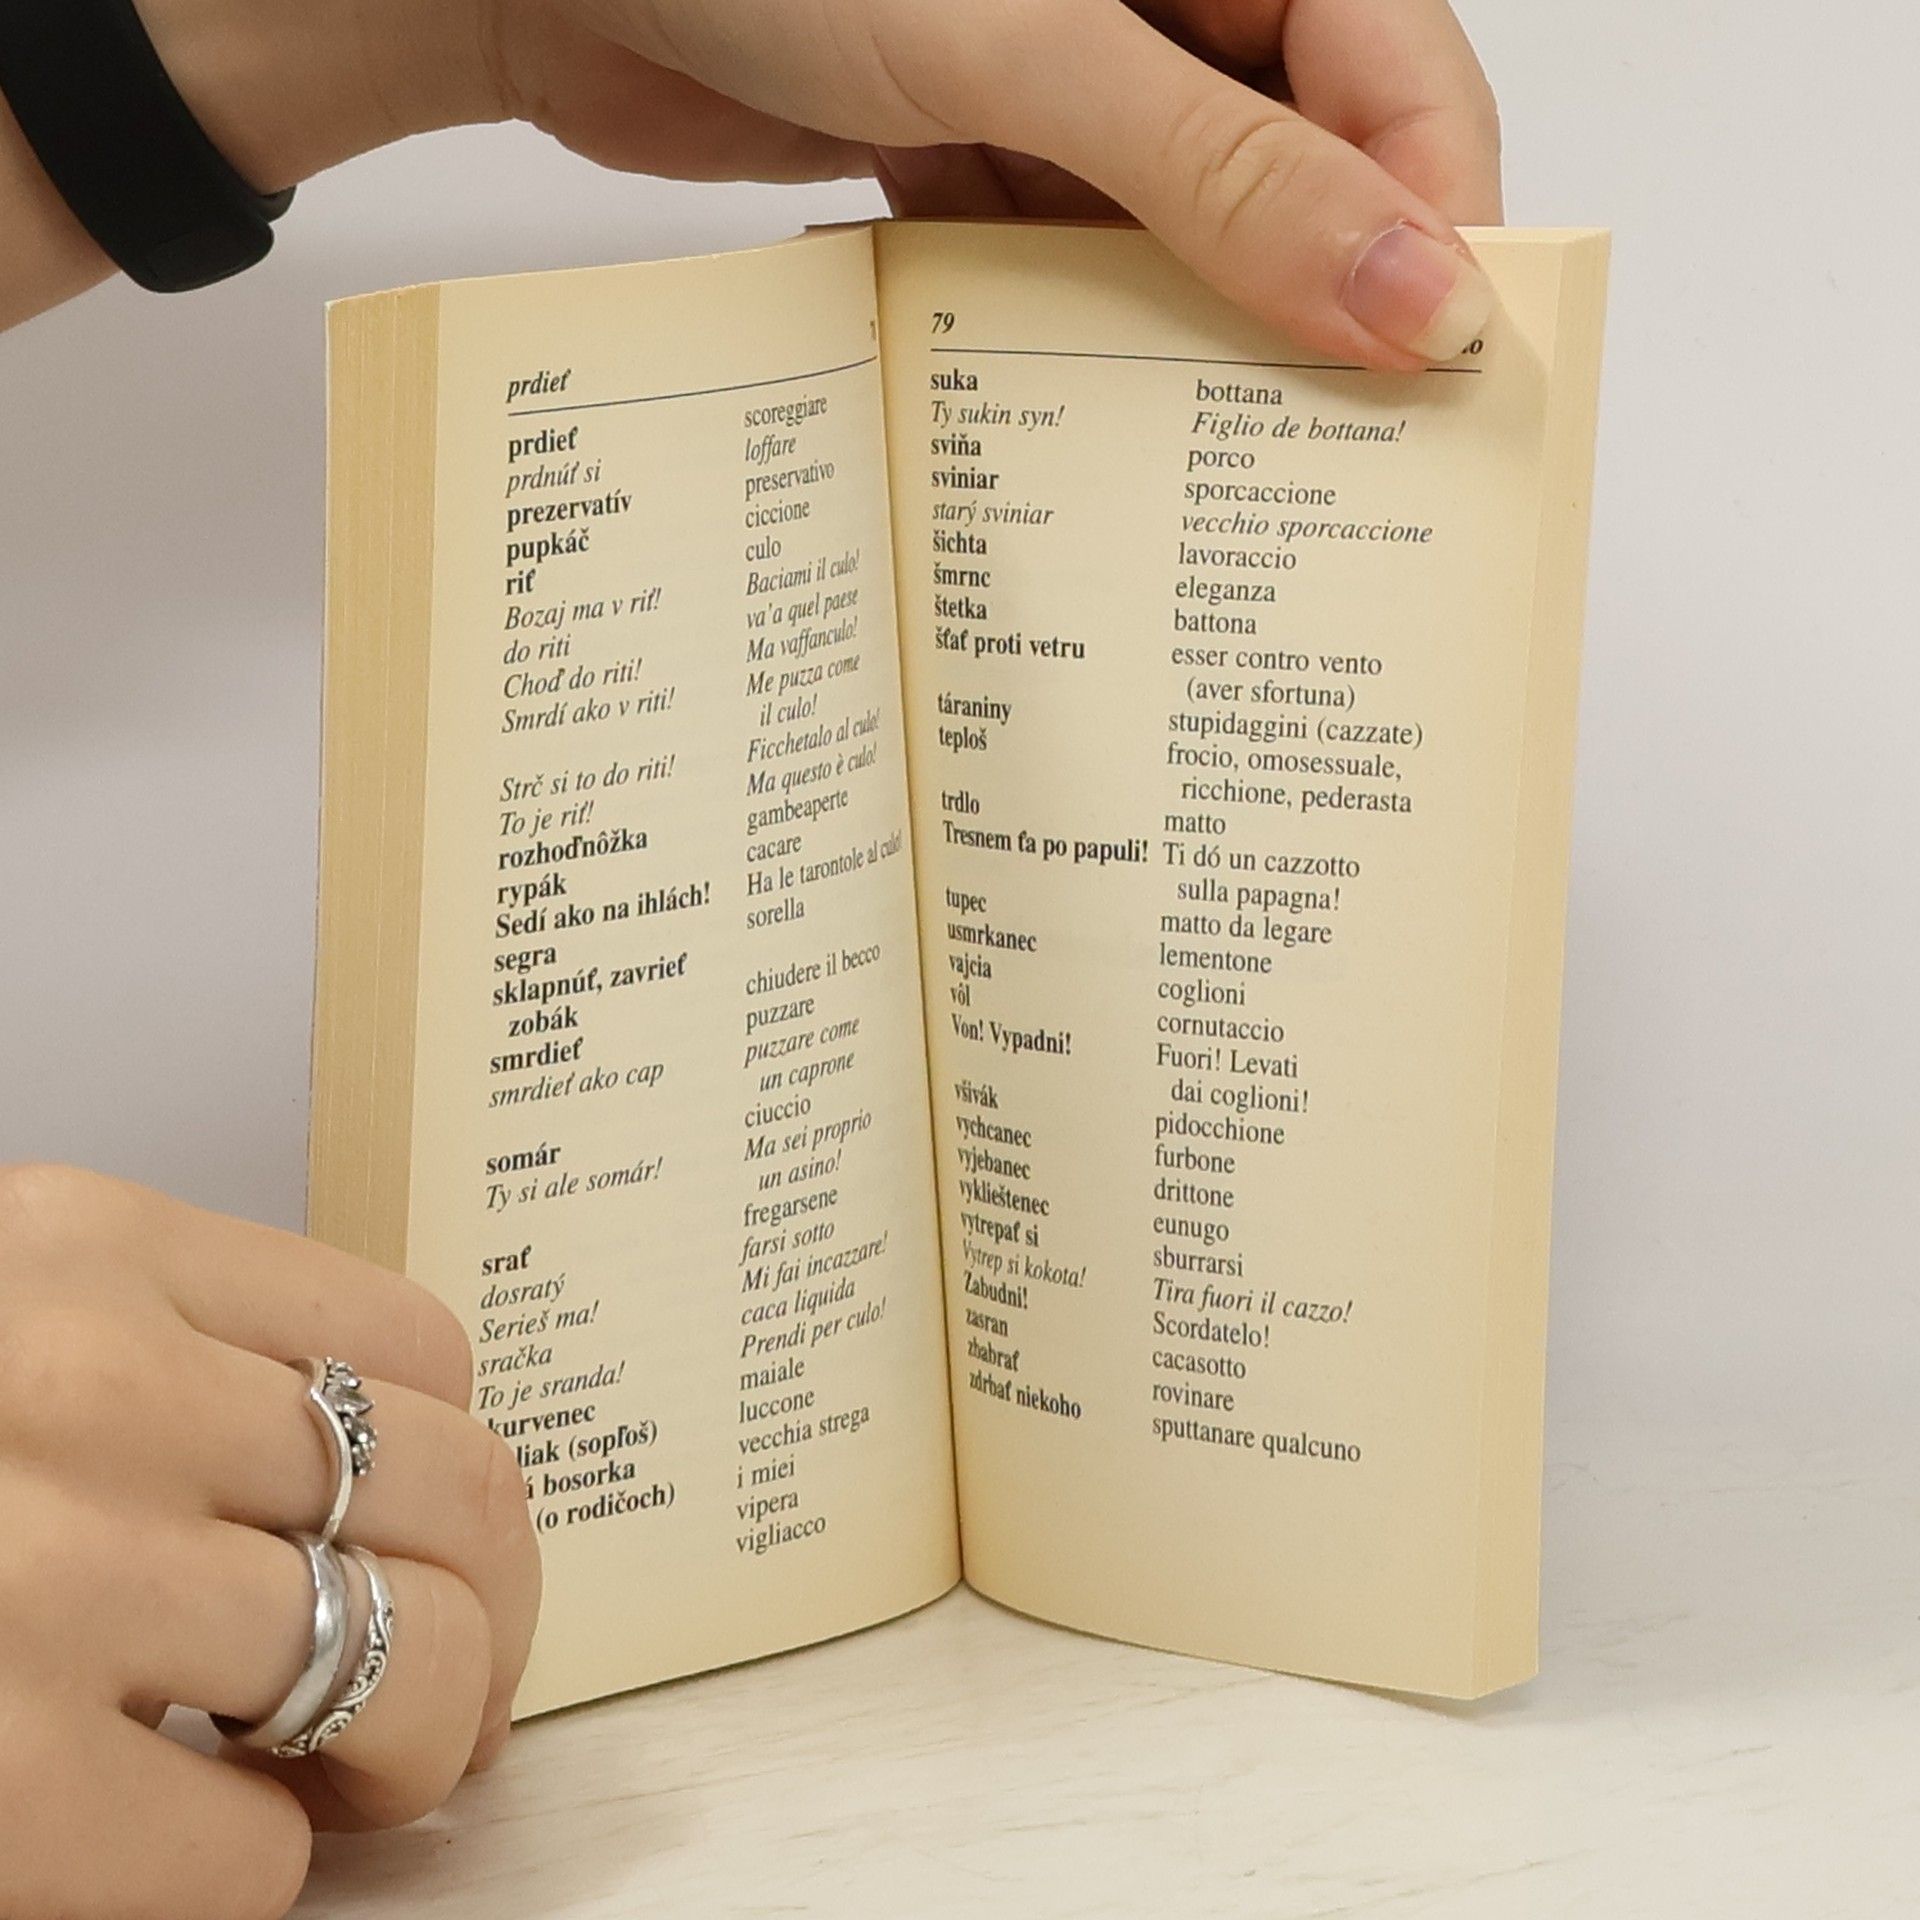 prdieť
prdieť scoreggiare
prdnúť si loffare
prezervatív preservativo
pupkáč ciccione
riť culo
Bozaj ma v riť! Baciami il culo!
do riti va'a quel paese
Choď do riti! Ma vaffanculo!
Smrdí ako v riti! Me puzza come
il culo!
Strč si to do riti! Ficchetalo al culo!
To je riť! Ma questo è culo!
rozhoďnôžka gambeaperte
rypák cacare
Sedí ako na ihlách! Ha le tarontole al culo!
segra sorella
sklapnúť, zavrieť
zobák chiudere il becco
smrdieť puzzare
smrdieť ako cap puzzare come
un caprone
somár ciuccio
Ty si ale somár! Ma sei proprio
un asino!
srať fregarsene
dosratý farsi sotto
Serieš ma! Mi fai incazzare!
sračka caca liquida
To je sranda! Prendi per culo!
kurvenec maiale
liak (sopľoš) luccone
á bosorka vecchia strega
(o rodičoch) i miei
vipera
vigliacco
79
suka bottana
Ty sukin syn! Figlio de bottana!
sviňa porco
sviniar sporcaccione
starý sviniar vecchio sporcaccione
šichta lavoraccio
šmrnc eleganza
štetka battona
šťať proti vetru esser contro vento
(aver sfortuna)
táraniny stupidaggini (cazzate)
teploš frocio, omosessuale,
ricchione, pederasta
trdlo matto
Tresnem ťa po papuli! Ti dó un cazzotto
sulla papagna!
tupec matto da legare
usmrkanec lementone
vajcia coglioni
vôl cornutaccio
Von! Vypadni! Fuori! Levati
dai coglioni!
všivák pidocchione
vychcanec furbone
vyjebanec drittone
vyklieštenec eunugo
vytrepať si sburrarsi
Vytrep si kokota! Tira fuori il cazzo!
Zabudni! Scordatelo!
zasran cacasotto
zbabrať rovinare
zdrbať niekoho sputtanare qualcuno